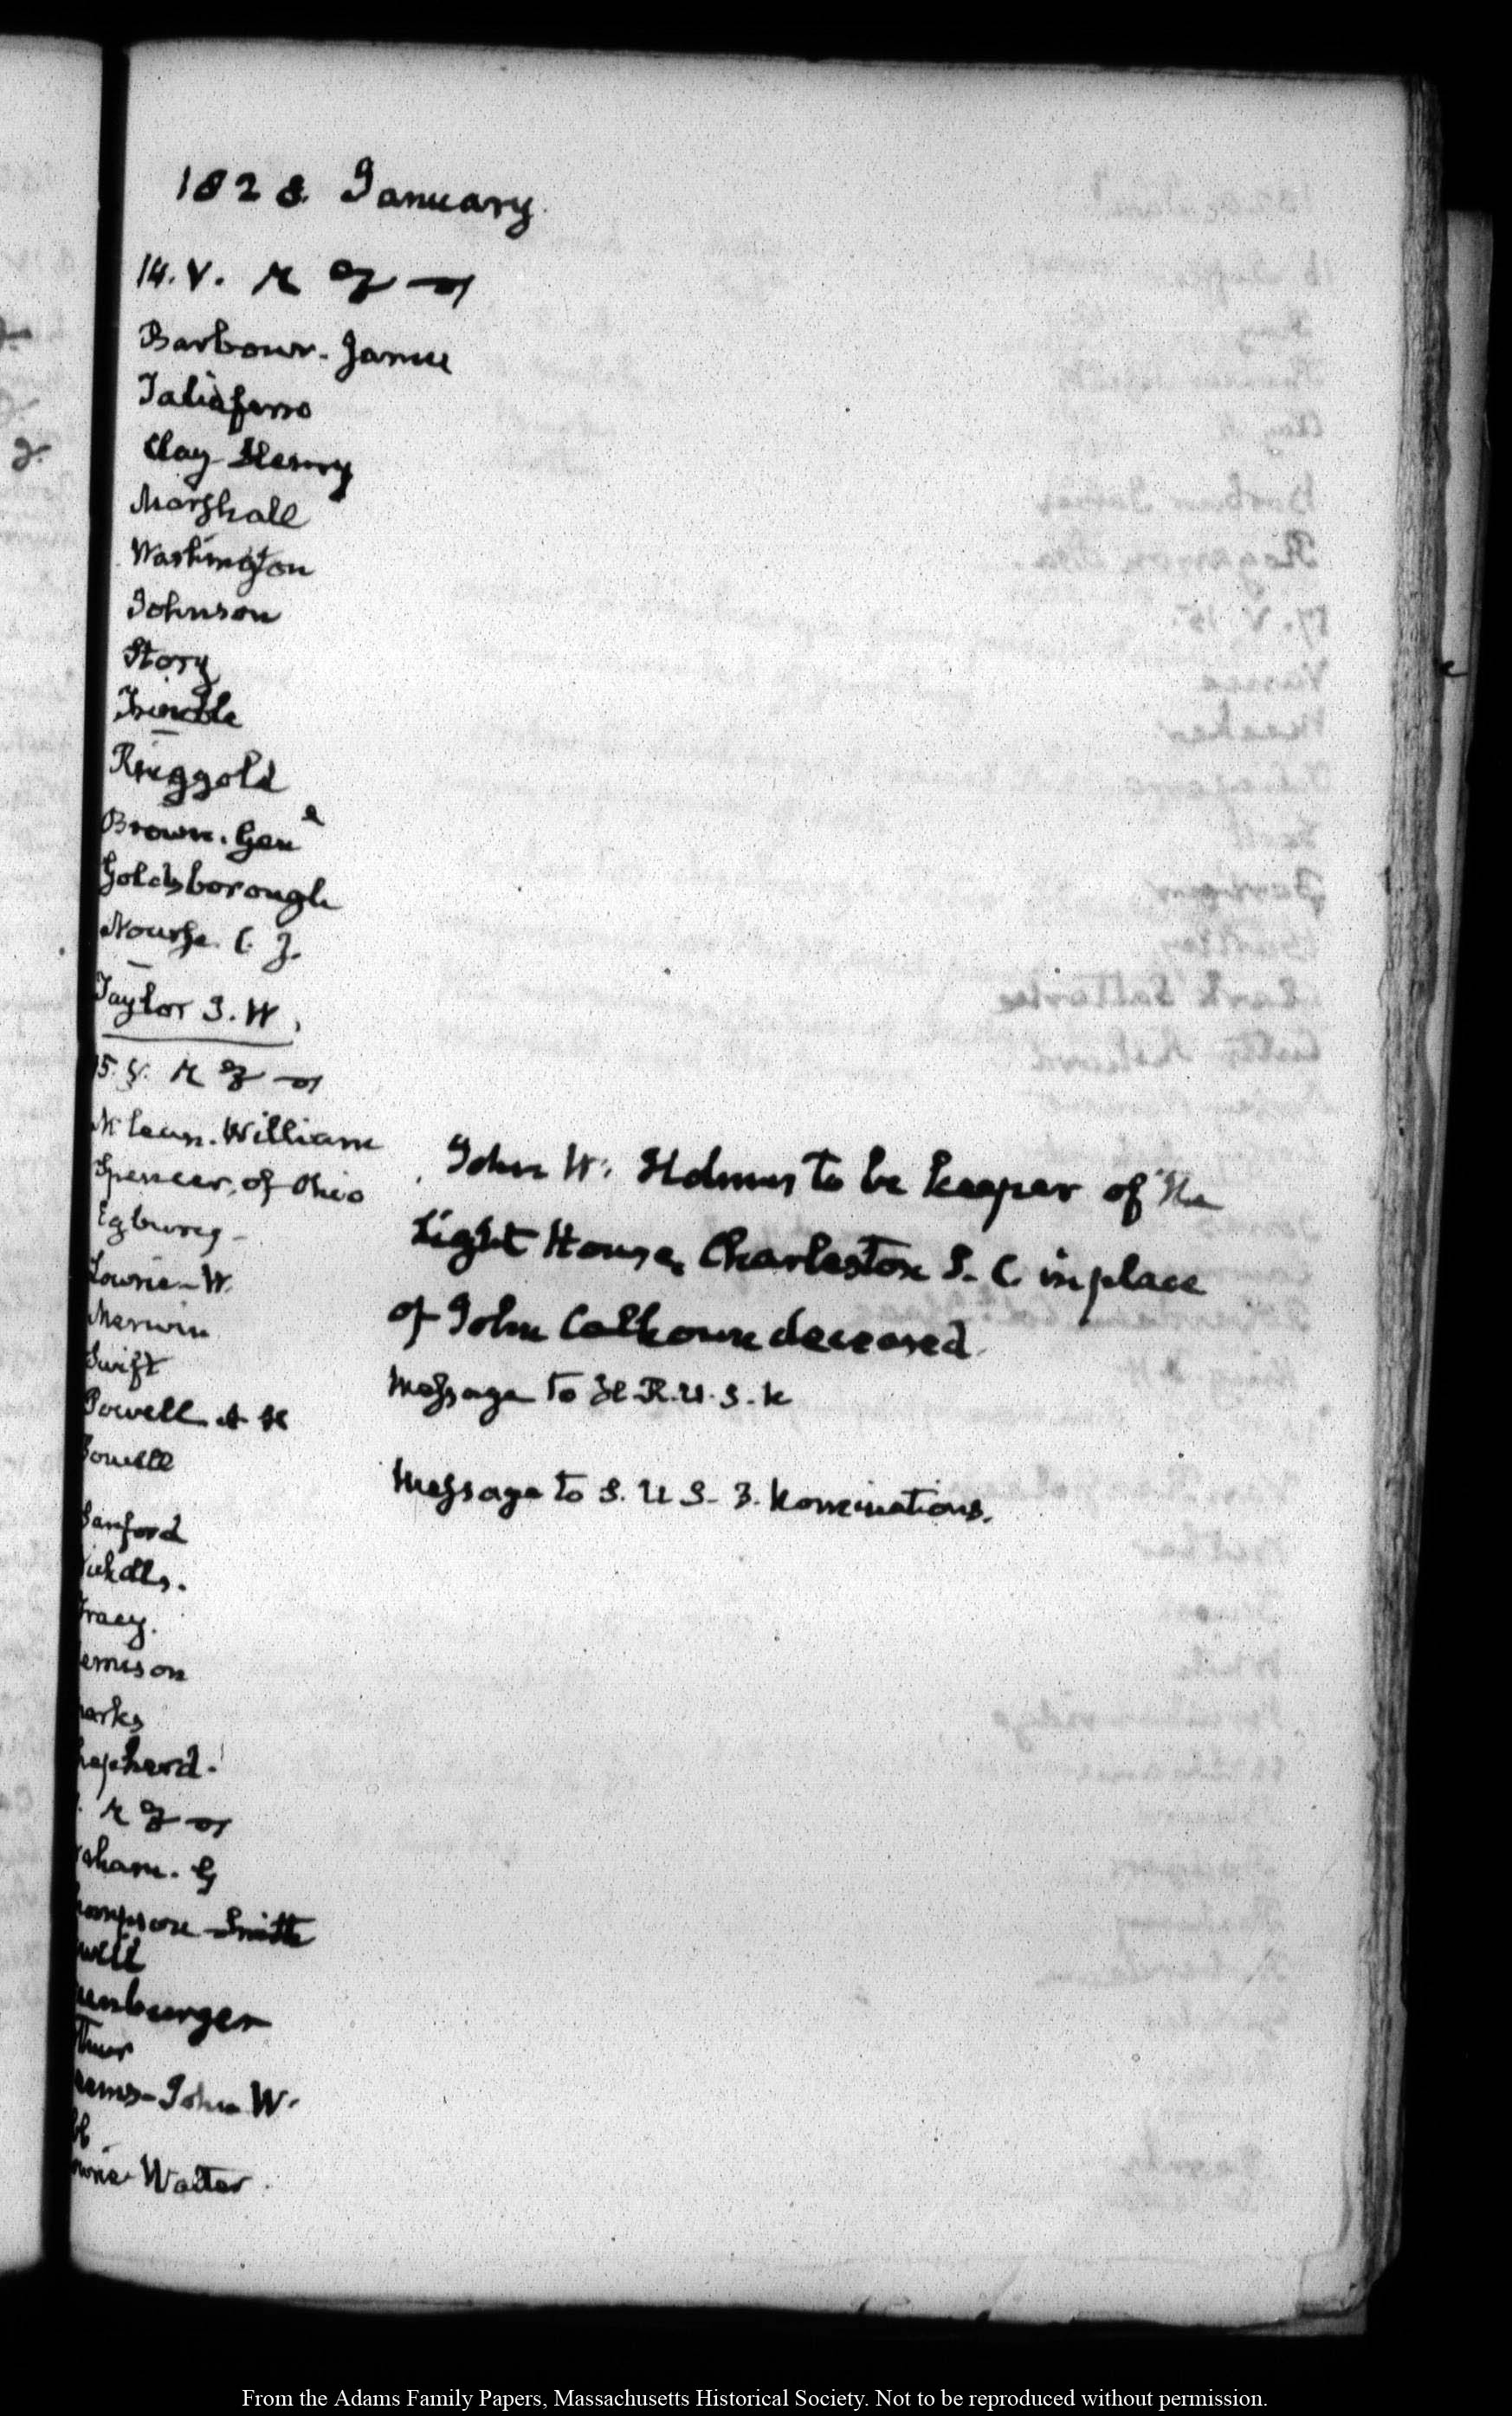 1828. January.
14. V.
Barbour. James
Taliaferro
Clay Henry
Marshall
Washington
Johnson
Story
Trimble
Ringgold
Brown. Genl
Goldsborough
Nourse. C. J.
Taylor J. W.
15. V.
McLean. William
Spencer, of Ohio
Lowrie - W.
Merwin
Swift
Powell A H
Sanford
Tracy.
emison
arks
hepherd.
aham. G
hompson Smith
well
unburger
John W.
owrie Walter
John W. Holmes to be keeper of the
Light House, Charleston S. C. in place
of John Calhoun deceased.
Message to H. R. U. S.
Message to S. U S- 3. Nominations.
From the Adams Family Papers, Massachusetts Historical Society. Not to be reproduced without permission.